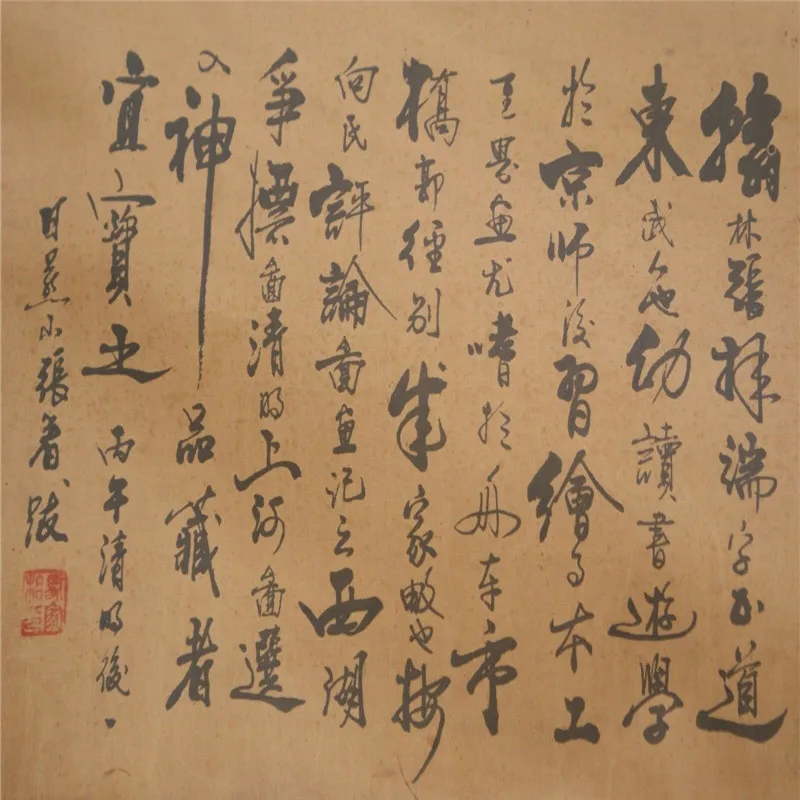 翰林張擇端字正道
東武人也幼讀書遊學
於京師後習繪事本工
界畫尤嗜於舟車市
橋郭徑別成家數也按
向氏評論圖畫記云西湖
爭標圖清明上河圖選
入神品藏者
宜寶之丙午清明後一
日燕山張著跋